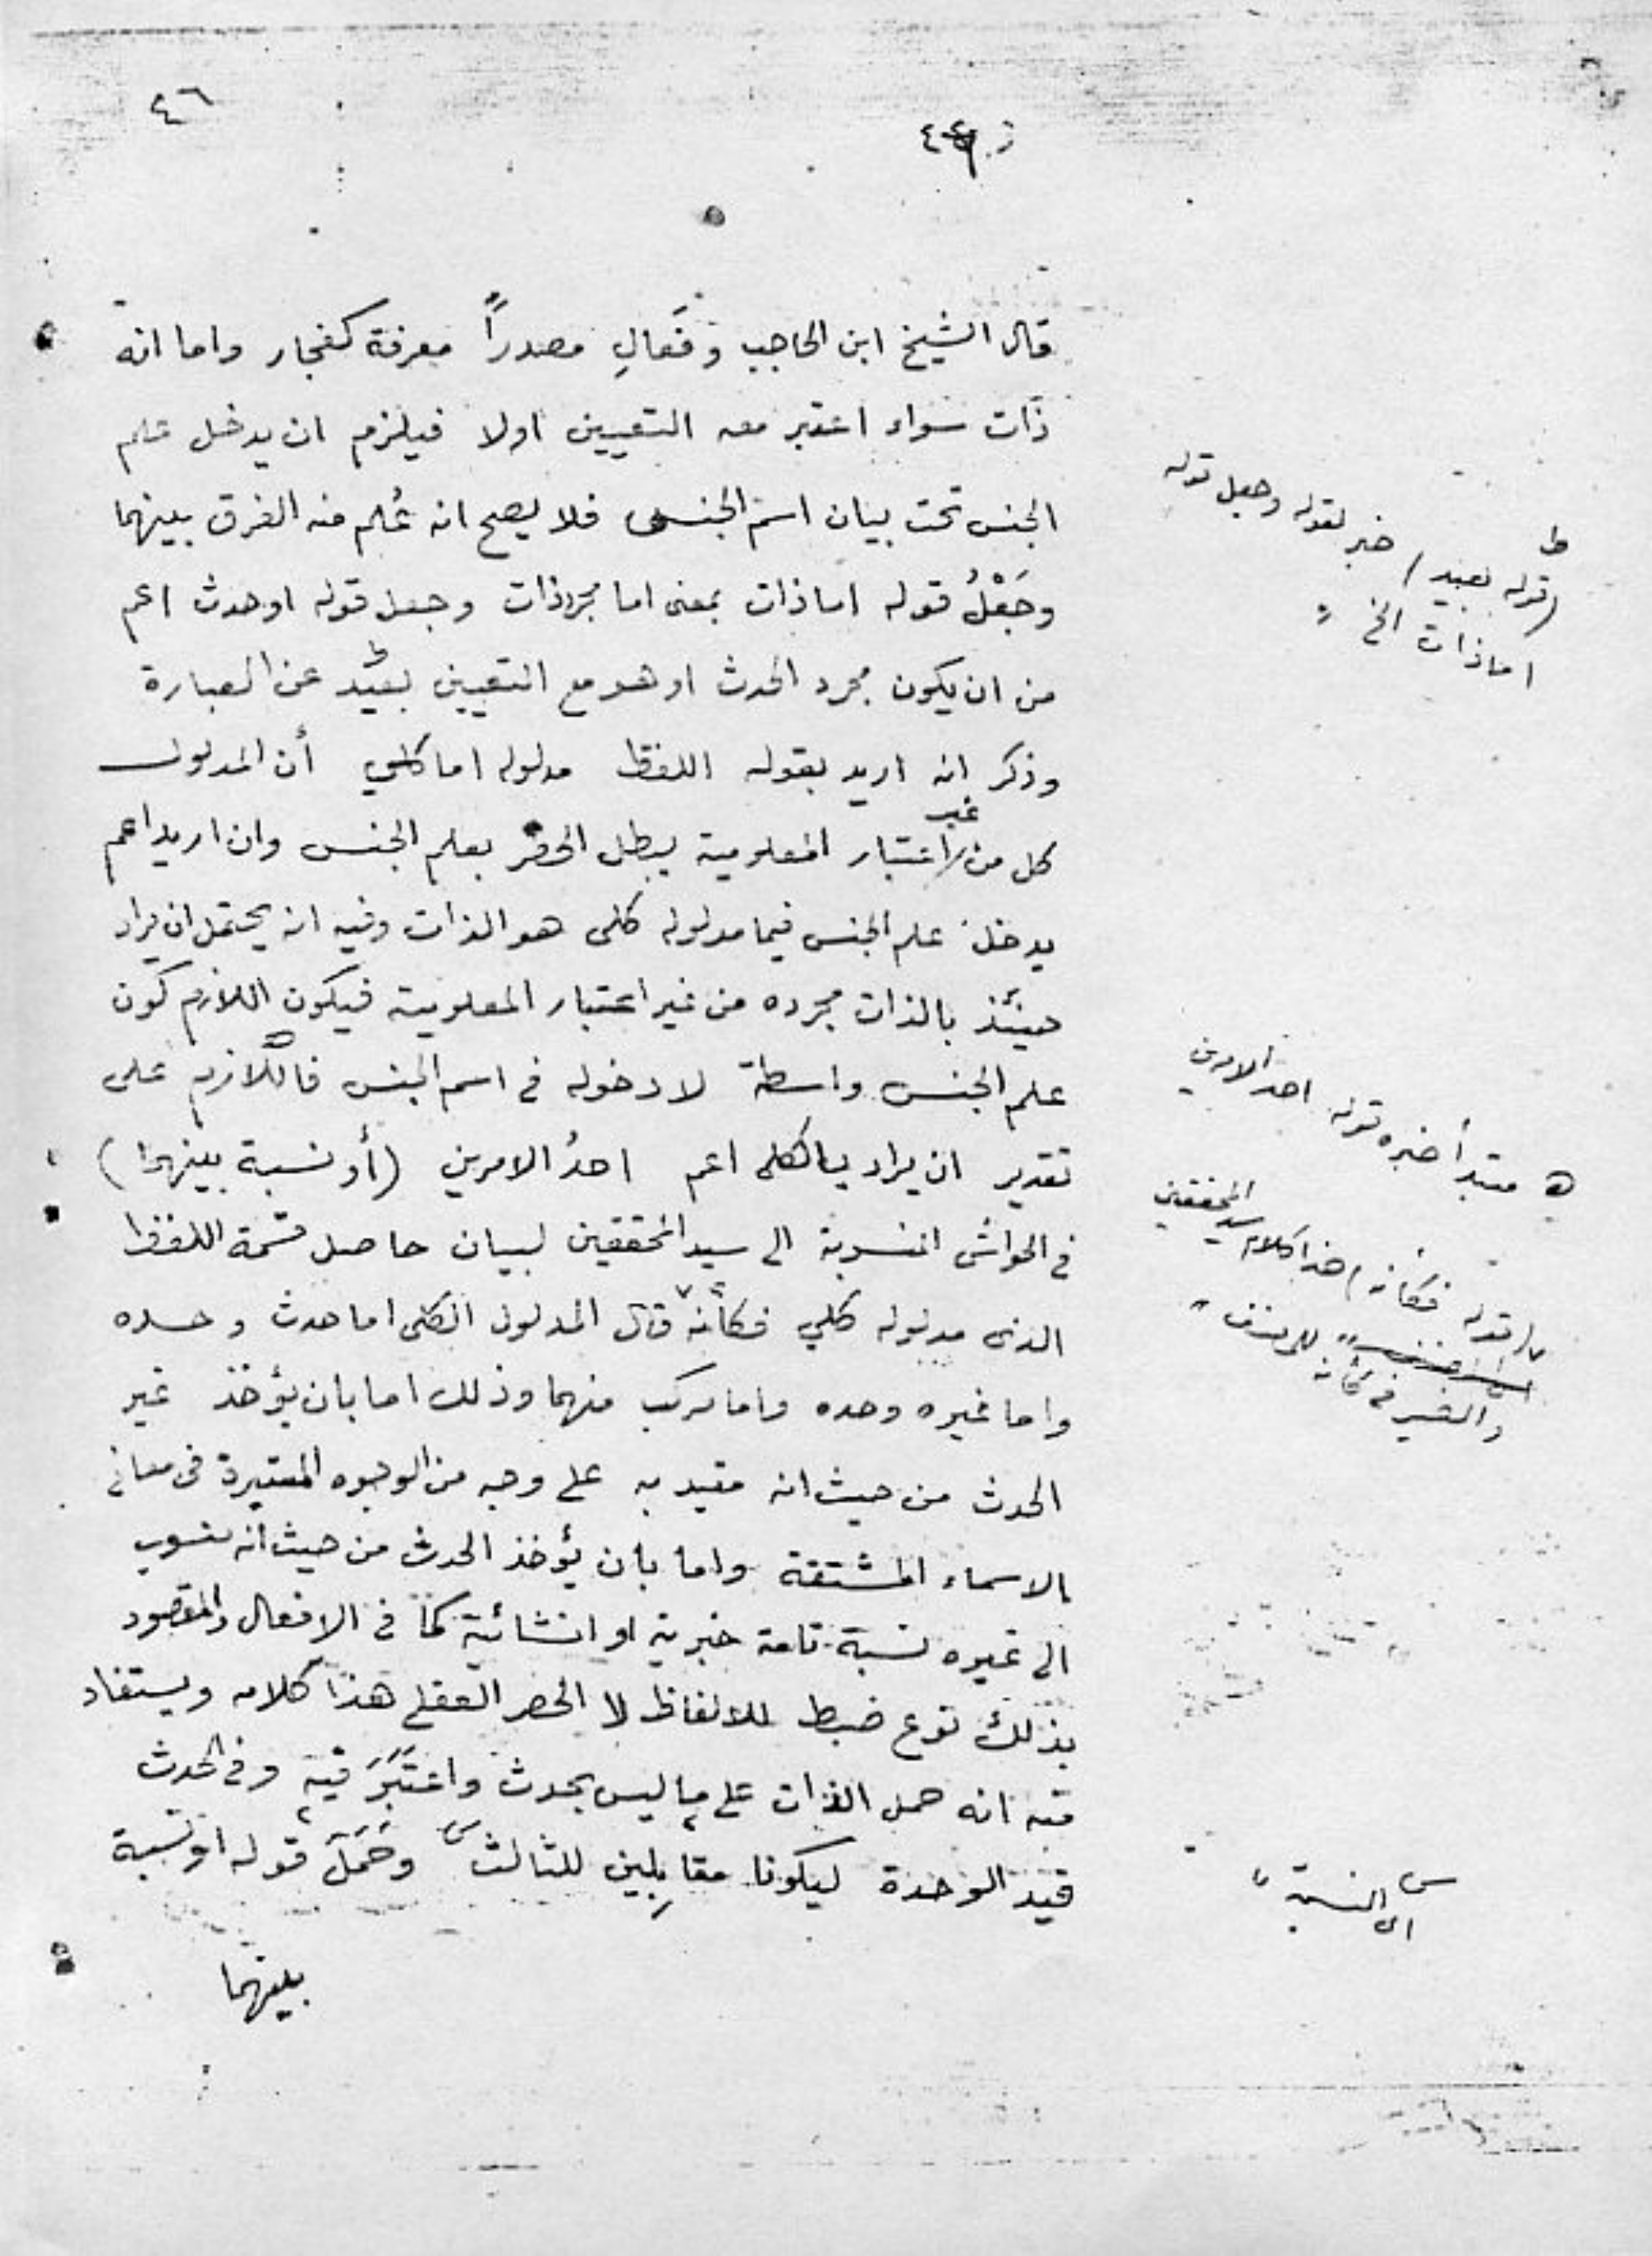 ٤٦
قال الشيخ ابن الحاجب وفَعالِ مصدراً معرفة كفجار واما انه
ذات سواء اعتبر معه التعيين اولا فيلزم ان يدخل علم
الجنس تحت بيان اسم الجنس فلا يصح انه عُلم منه الفرق بينهما
وجَعْلُ قوله اما ذات بمعنى اما مجرد ذات وجعل قوله او حدث اعم
من ان يكون مجرد الحدث او هو مع التعيين بعيد عن العبارة
وذكر انه اريد بقوله اللفظ مدلوله اما كلي أن المدلول
كل من غير اعتبار المعلومية يبطل الحصر بعلم الجنس وان اريد اعم
يدخل علم الجنس فيما مدلوله كلى هو الذات وفيه انه يحتمل ان يراد
حينئذ بالذات مجرده من غير اعتبار المعلومية فيكون اللازم كون
علم الجنس واسطة لا دخوله في اسم الجنس فاللازم على
تقدير ان يراد بالكلى اعم احدُ الامرين (أو نسبة بينهما)
في الحواشى المنسوبة الى سيد المحققين لبيان حاصل قسمة اللفظ
الذى مدلوله كلي فكأنه قال المدلول الكلى اما حدث وحده
واما غيره وحده واما مركب منهما وذلك اما بان يؤخذ غير
الحدث من حيث انه مقيد به على وجه من الوجوه المعتبرة في معانى
الاسماء المشتقة واما بان يؤخذ الحدث من حيث انه منسوب
الى غيره نسبة تامة خبرية او انشائية كما في الافعال والمقصود
بذلك نوع ضبط للالفاظ لا الحصر العقلي هذا كلامه ويستفاد
منه انه حمل الذات على ما ليس بحدث واعتَبَرَ فيه وفي الحدث
قيد الوحدة ليكونا مقابِلين للثالث وحَمَلَ قوله او نسبة
بينهما
ط
(قوله بعيد) خبر لقوله وجعل قوله
اما ذات الخ
ه مبتدأ خبره قوله احد الامرين
(قوله فكأنه) هذا كلام سيد المحققين
والضمير في كأنه للمصنف
س
اى النسبة